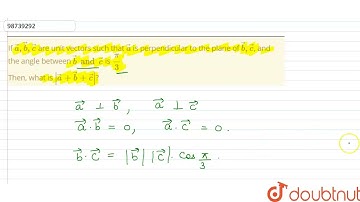 98739292
If a⃗, b⃗, c⃗ are unit vectors such that a⃗ is perpendicular to the plane of b⃗, c⃗, and
the angle between b⃗ and c⃗ is π/3.
Then, what is |a⃗ + b⃗ + c⃗|?
a⃗ ⊥ b⃗, a⃗ ⊥ c⃗
a⃗ · b⃗ = 0, a⃗ · c⃗ = 0.
b⃗ · c⃗ = |b⃗| |c⃗| · cos π/3 ·
doubtnut